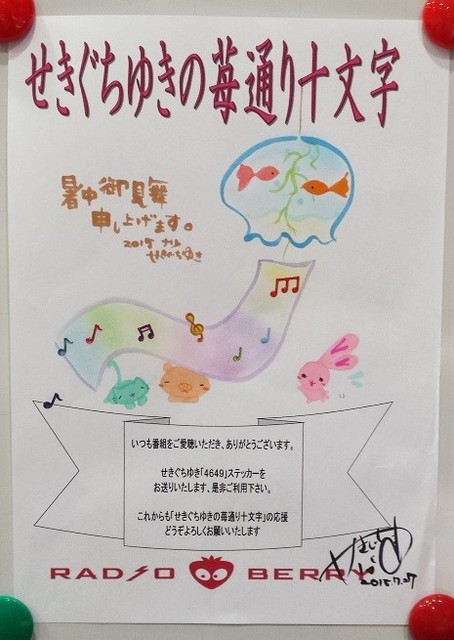 せきぐちゆきの苺通り十文字
暑中御見舞
申し上げます。
2015 なつ
せきぐちゆき
いつも番組をご愛聴いただき、ありがとうございます。
せきぐちゆき「4649」ステッカーを
お送りいたします、是非ご利用下さい。
これからも「せきぐちゆきの苺通り十文字」の応援
どうぞよろしくお願いいたします
RADIO BERRY
2015.7.27